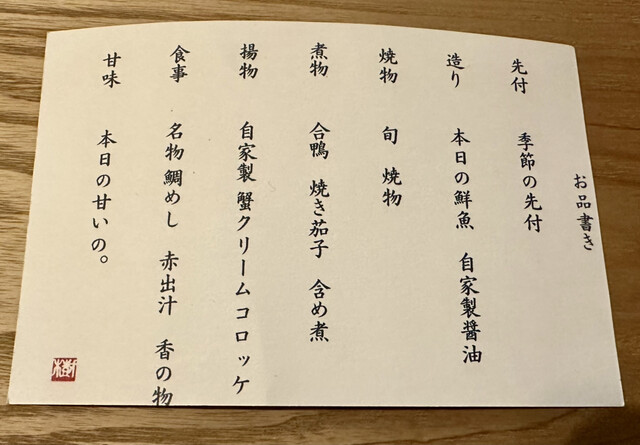 お品書き
先付 季節の先付
造り 本日の鮮魚 自家製醤油
焼物 旬 焼物
煮物 合鴨 焼き茄子 含め煮
揚物 自家製 蟹クリームコロッケ
食事 名物鯛めし 赤出汁 香の物
甘味 本日の甘いの。